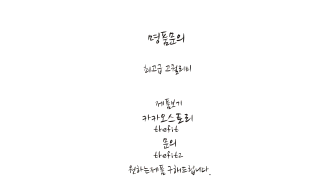 명품문의
최고급 고퀄리티
제품보기
카카오스토리
thefit
문의
thefit2
원하는제품 구해드립니다.